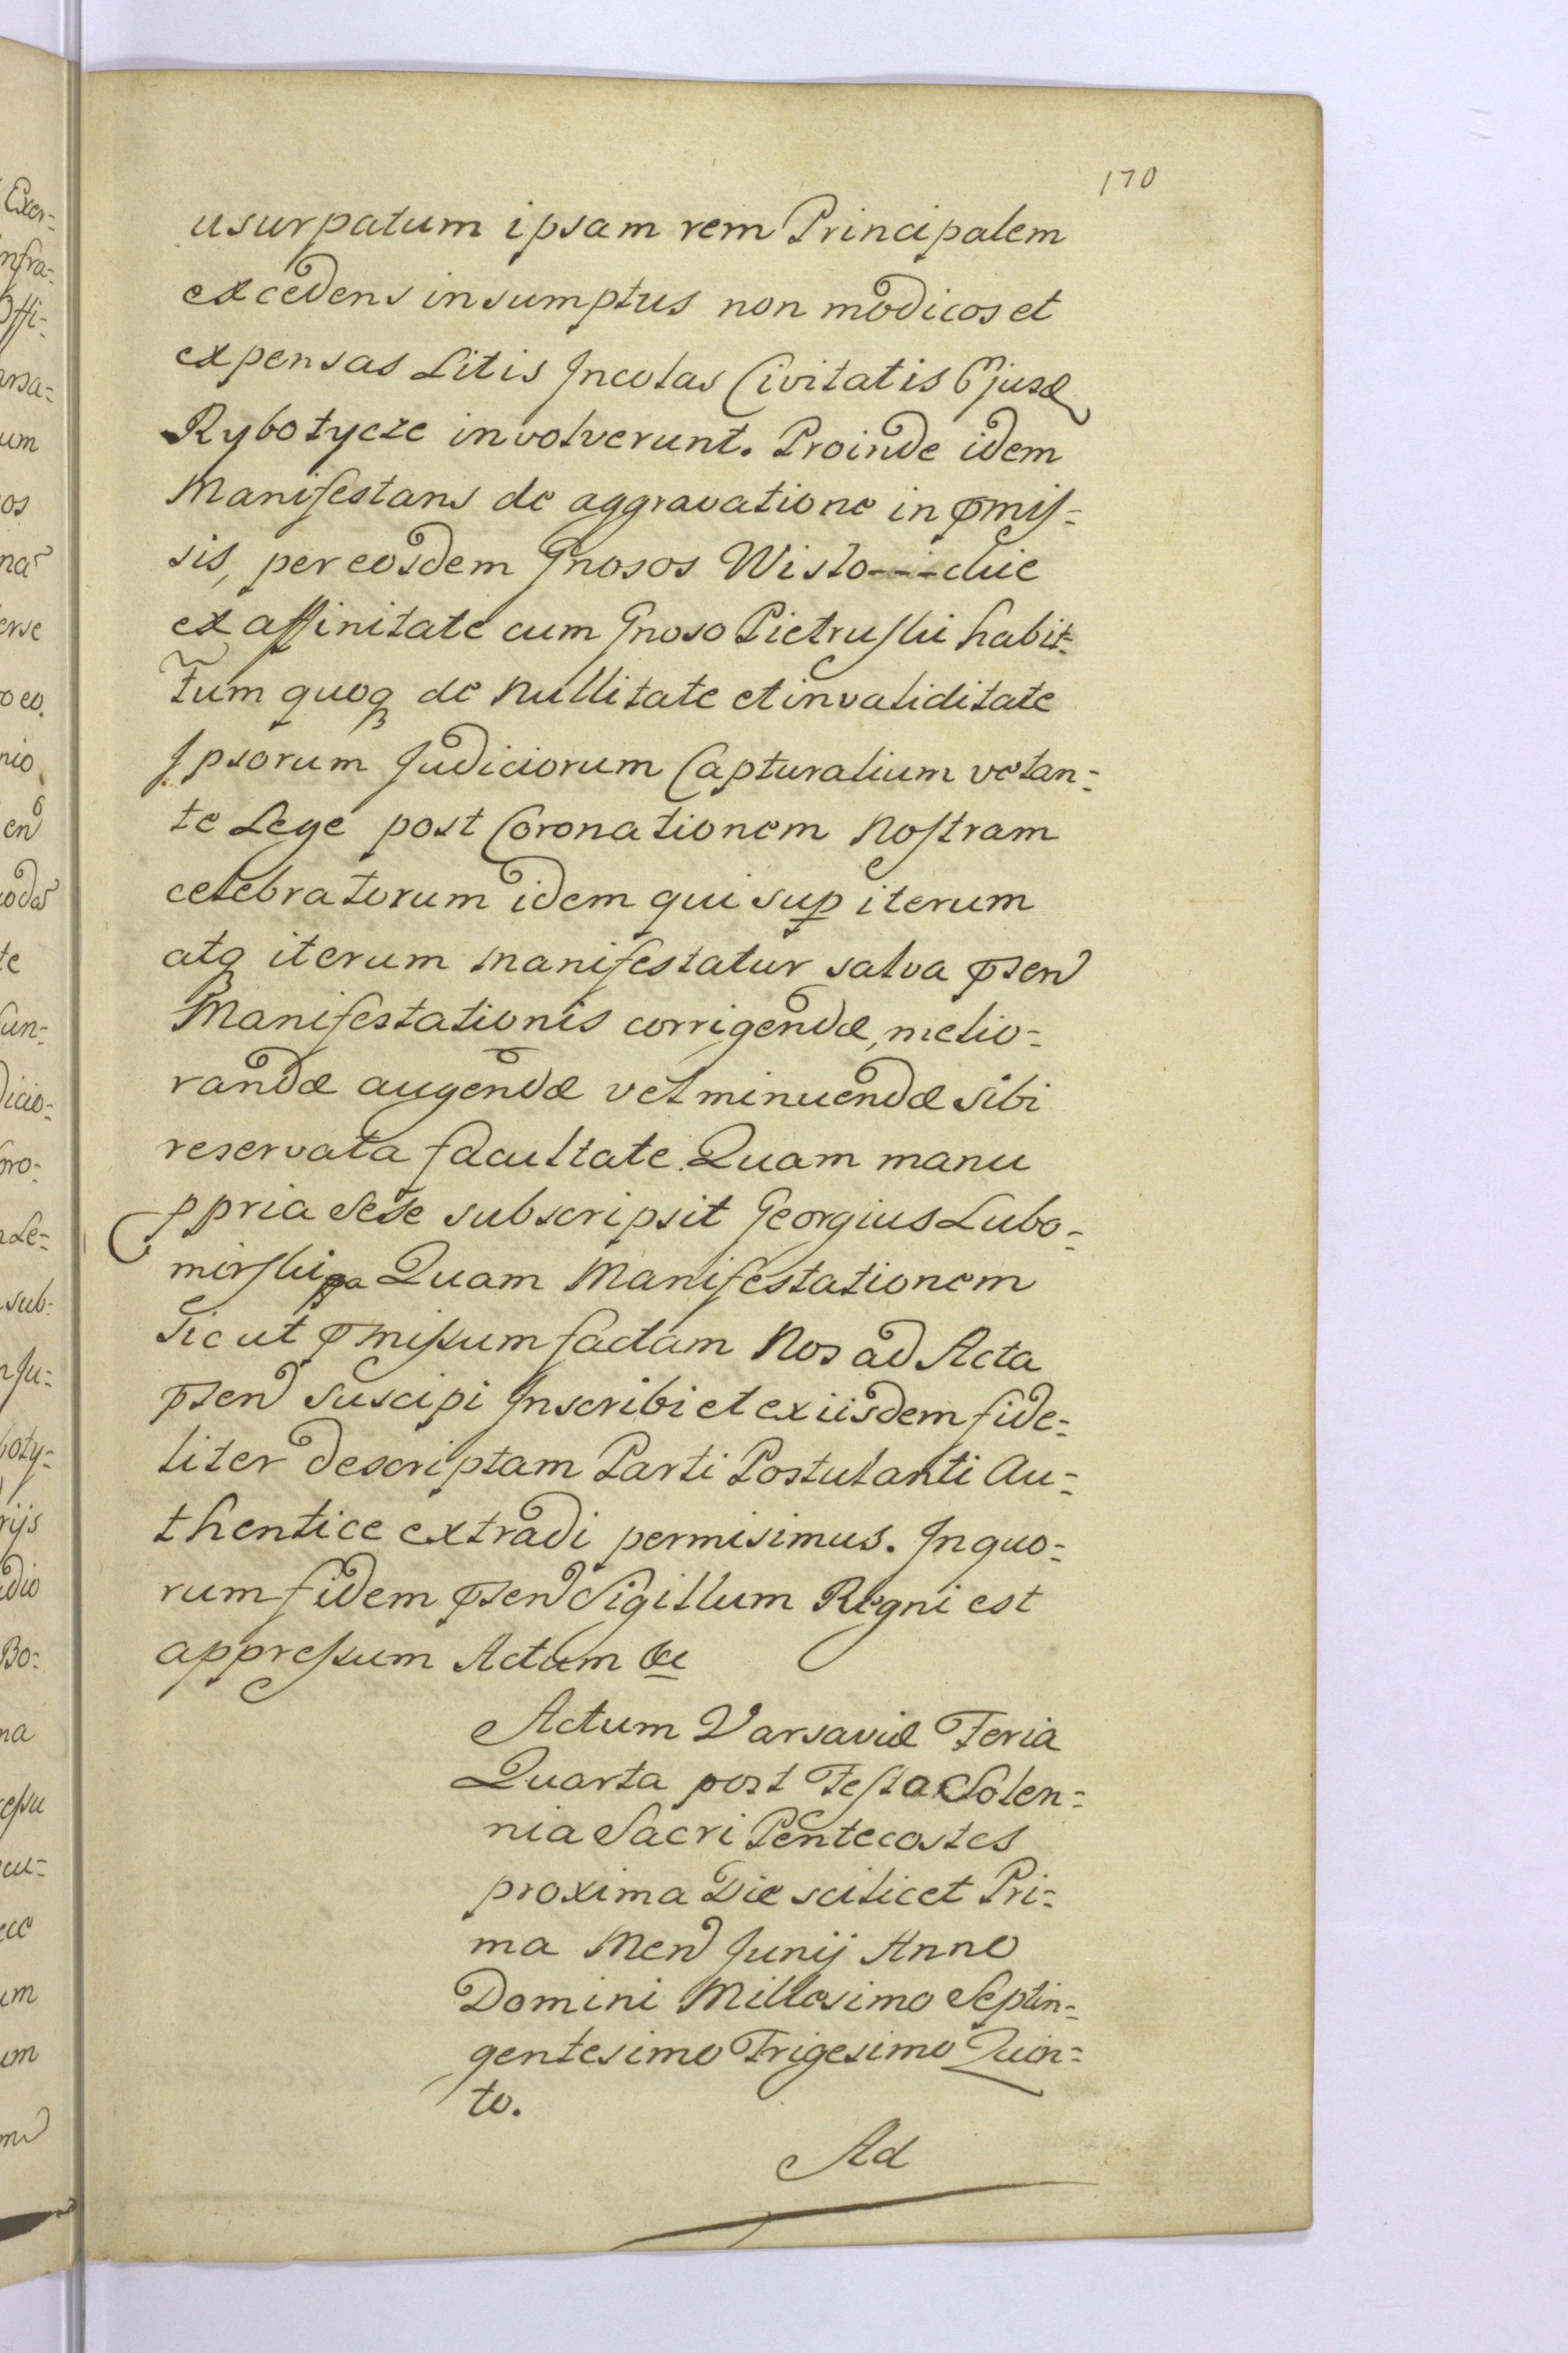 170
usurpatum ipsam rem Principalem
excedens insumptus non modicos et
expensas Litis Incolas Civitatis Ejusd
Rybotycze involverunt. Proinde idem
Manifestans de aggravatione in pmis=
sis, per eosdem Gnosos Wislo---ckie
ex affinitate cum Gnoso Pietruski habit=
Tum quoq de Nullitate et invaliditate
Ipsorum Judiciorum Capturalium vetan=
te Lege post Coronationem Nostram
celebratorum idem qui sup iterum
atq iterum manifestatur salva psen
Manifestationis corrigendæ, melio=
randæ augendæ vel minuendæ sibi
reservata facultate. Quam manu
ppria sese subscripsit Georgius Lubo=
mirski Quam Manifestationem
Sicut pmissum factam Nos ad Acta
psen suscipi Inscribi et ex iisdem fide=
liter descriptam Parti Postulanti Au=
thentice extradi permisimus. In quo=
rum fidem psen Sigillum Regni est
appressum Actum &c
Actum Varsaviæ Feria
Quarta post Festa Solen=
nia Sacri Pentecostes
proxima Die scilicet Pri=
ma Men Junij Anno
Domini Millesimo Septin=
gentesimo Trigesimo Quin=
to.
Ad